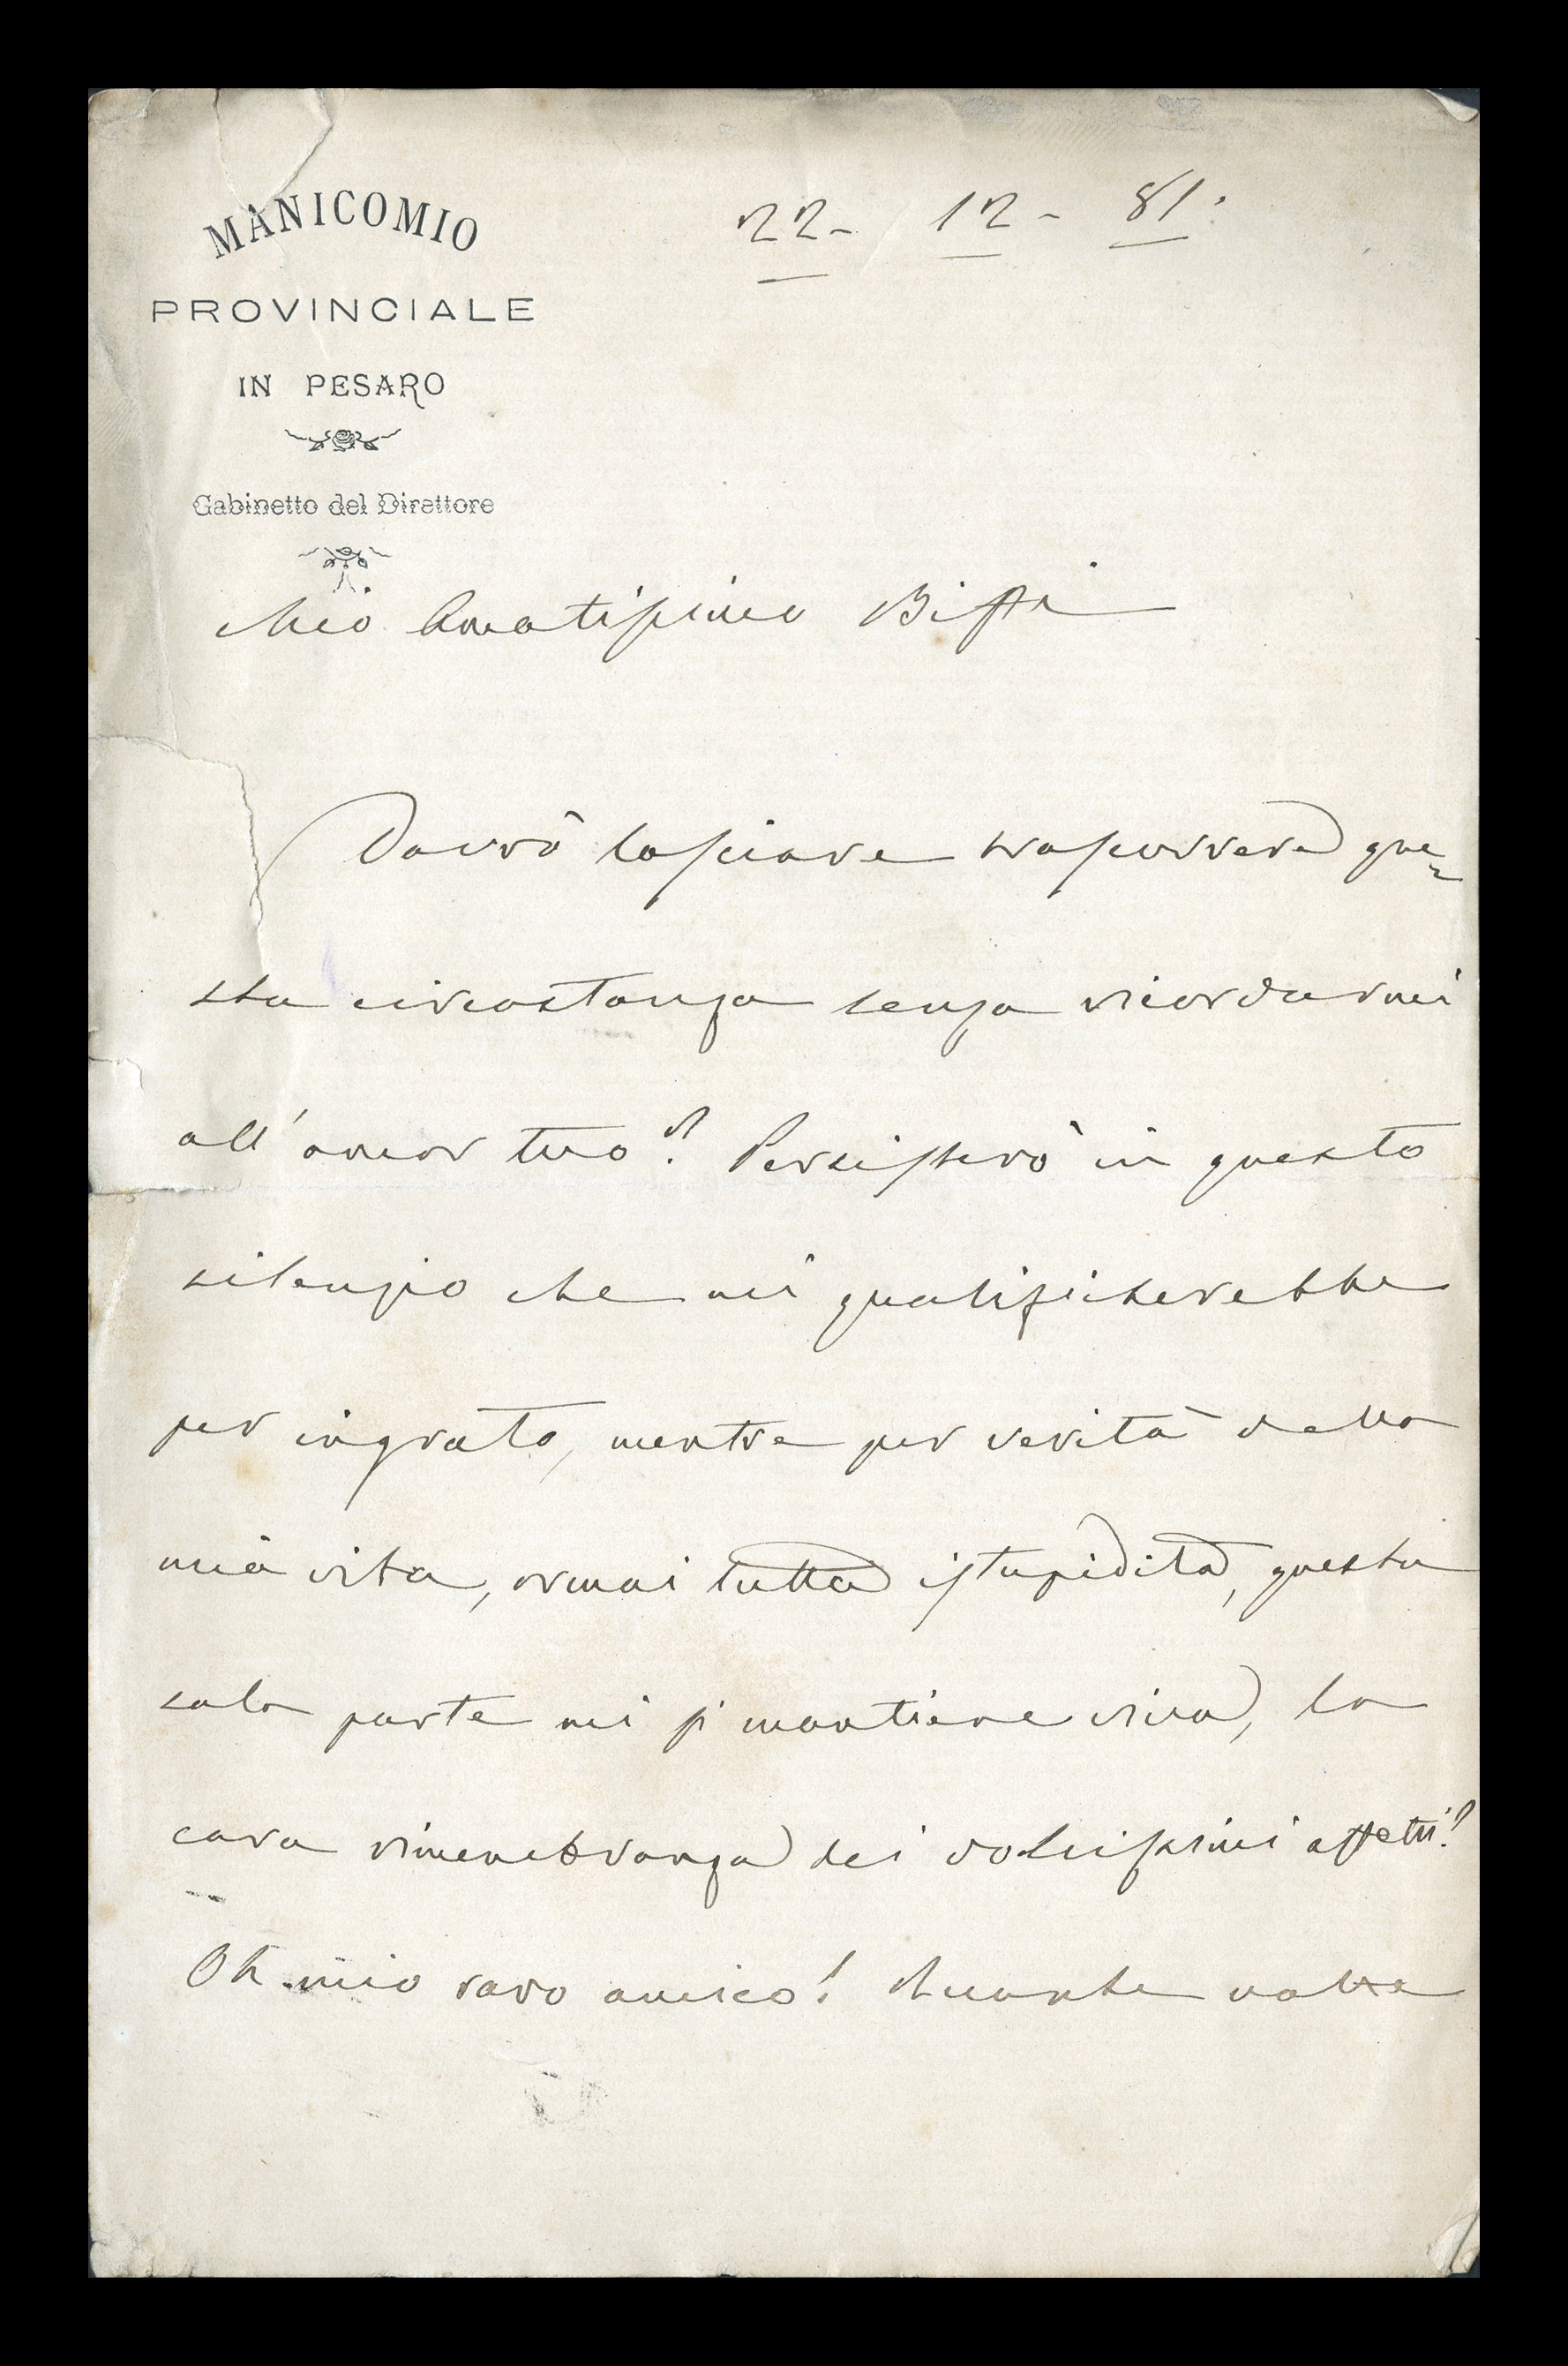 MANICOMIO
PROVINCIALE
IN PESARO
Gabinetto del Direttore
22- 12- 81.
Mio Amatissimo Biffi
Dovrò lasciare trascorrere que=
sta circostanza senza ricordarmi
all'amor tuo? Persisterò in questo
silenzio che mi qualificherebbe
per ingrato, mentre per verità della
mia vita, ormai tutta istupidita, questa
sola parte mi si mantiene viva, la
cara rimembranza dei dolcissimi affetti?
Oh mio caro amico! Quante volte